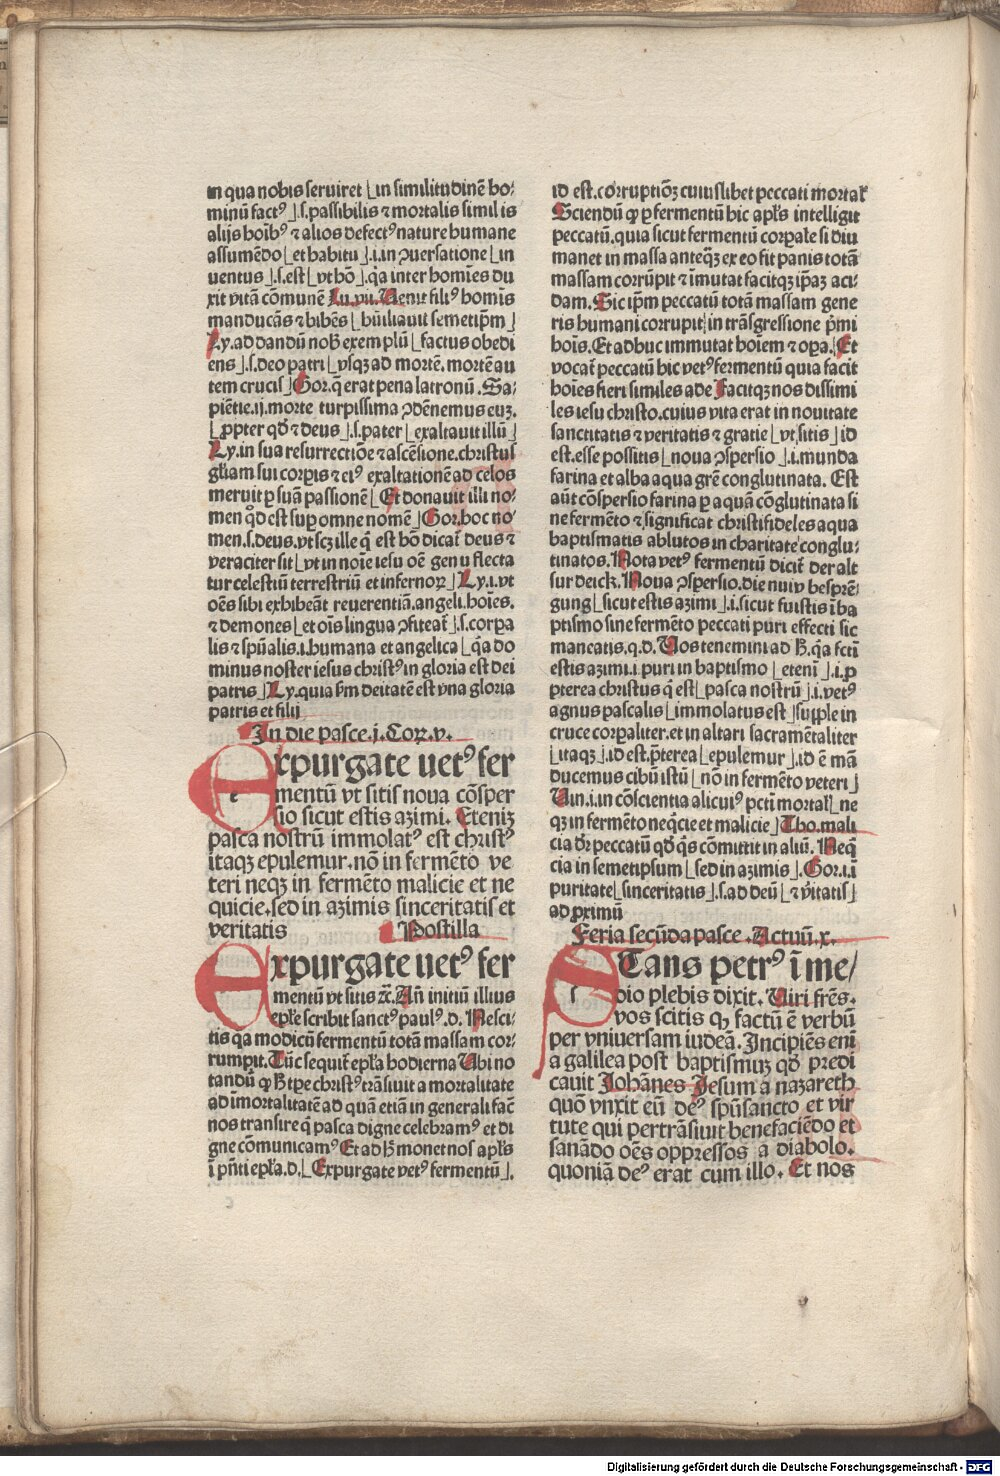 in qua nobis seruiret ⌊in similitudinē ho⸗
minū factꝰ⌋.s.passibilis ⁊ mortalis simil is
alijs hoībꝰ ⁊ alios defectꝰ nature humane
assumēdo ⌊et habitu⌋.i.in ꝯuersatione ⌊in
uentus⌋.s.est ⌊vt hō⌋.q̄a inter homīes du
xit vitā cōmunē Lu.vii. Uenit filiꝰ homīs
manducās ⁊ bibēs ⌊hūiliauit semetip̄m⌋
Ly.ad dandū nob̄ exemplū ⌊factus obedi
ens⌋.s.deo patri ⌊vsqꝫ ad mortē. mortē au
tem crucis⌋ Gor.q̄ erat pena latronū. Sa⸗
piētie.ij.morte turpissima ꝯdēnemus euꝫ.
⌊ꝓpter qd̄ ⁊ deus⌋.s.pater ⌊exaltauit illū⌋
Ly.in sua resurrectiōe ⁊ ascēsione.christus
gl̄iam sui corꝑis ⁊ eiꝰ exaltationē ad celos
meruit ꝑ suā passionē ⌊Et donauit illi no⸗
men qd̄ est suꝑ omne nomē⌋ Gor.hoc no⸗
men.s.deus.vt scꝫ ille q̄ est hō dicat̄ deus ⁊
veraciter sit ⌊vt in noīe iesu oē genu flecta
tur celestiū terrestriū et infernoꝝ⌋ Ly.i.vt
oēs sibi exhibeāt reuerentiā.angeli.hoīes.
⁊ demones ⌊et oīs lingua ꝯfiteat̄⌋.s.corꝑa
lis ⁊ spūalis.i.humana et angelica ⌊q̄a do
minus noster iesus christꝰ in gloria est dei
patris⌋ Ly.quia s̄m deitatē est vna gloria
patris et filij
In die pasce.j.Coꝝ.v.
Expurgate uetꝰ fer
mentū vt sitis noua cōsper
sio sicut estis azimi. Eteniꝫ
pasca nostrū immolatꝰ est christꝰ
itaqꝫ epulemur.nō in fermēto ve
teri neqꝫ in fermēto malicie et ne
quicie.sed in azimis sinceritatis et
veritatis Postilla
Expurgate uetꝰ fer
mentū vt sitis ⁊c̄. An̄ initiū illius
ep̄le scribit sanctꝰ paulꝰ.d. Nesci⸗
tis qa modicū fermentū totā massam cor⸗
rumpit. Tūc sequit̄ ep̄la hodierna Ubi no
tandū ꝙ h̄ tꝑe christꝰ trāsiuit a mortalitate
ad imortalitatē ad quā etiā in generali fac̄
nos transire q̄ pasca digne celebramꝰ et di
gne cōmunicamꝰ Et ad h̄ monet nos apl̄s
ī p̄nti ep̄la.d. ⌊Expurgate vetꝰ fermentū⌋.
id est.corruptiōꝫ cuiuslibet peccati mortal̄
Sciendū ꝙ ꝑ fermentū hic apl̄s intelligit
peccatū.quia sicut fermentū corꝑale si diu
manet in massa anteq̄ꝫ ex eo fit panis totā
massam corrūpit ⁊ īmutat facitqꝫ ip̄aꝫ aci⸗
dam. Sic ip̄m peccatū totā massam gene
ris humani corrupit in trāsgressione p̄mi
hoīs. Et adhuc immutat hoīem ⁊ oꝑa. Et
vocat̄ peccatū hic vetꝰ fermentū quia facit
hoīes fieri similes ade Facitqꝫ nos dissimi
les iesu christo.cuius vita erat in nouitate
sanctitatis ⁊ veritatis ⁊ gratie ⌊vt sitis⌋ id
est.esse possitis ⌊noua ꝯspersio⌋.i.munda
farina et alba aqua grē conglutinata. Est
aūt cōspersio farina ꝑ aquā cōglutinata si
ne fermēto ⁊ significat christifideles aqua
baptismatis ablutos in charitate conglu⸗
tinatos. Nota vetꝰ fermentū dicit̄ der alt
sur deick. Noua ꝯspersio.die nuw besprē⸗
gung ⌊sicut estis azimi⌋.i.sicut fuistis ī ba
ptismo sine fermēto peccati puri effecti sic
maneatis.q.d. Uos tenemini ad h̄.q̄a fcti
estis azimi.i.puri in baptismo ⌊etenī⌋.i.ꝓ
pterea christus q̄ est ⌊pasca nostrū⌋.i.vetꝰ
agnus pascalis ⌊immolatus est⌋ supple in
cruce corꝑaliter.et in altari sacramētaliter
⌊itaqꝫ⌋.id est.p̄terea ⌊epulemur⌋.id ē mā
ducemus cibū istū ⌊nō in fermēto veteri⌋
Uin.i.in cōscientia alicuiꝰ pctī mortal̄ ⌊ne
qꝫ in fermēto neq̄cie et malicie⌋ Tho.mali
cia dr̄ peccatū qd̄ q̄s cōmittit in aliū. Neq̄
cia in semetipsum ⌊sed in azimis⌋. Gor.i.ī
puritate ⌊sinceritatis⌋.s.ad deū ⌊⁊ v̄itatis⌋
ad ꝓximū
Feria secūda pasce. Actuū.x.
STans petrꝰ ī me/
dio plebis dixit. Uiri frēs.
vos scitis qꝫ factū ē verbū
per vniuersam iudeā. Incipiēs enī
a galilea post baptismuꝫ qd̄ predi
cauit Johānes Jesum a nazareth
quō vnxit eū deꝰ spūsancto et vir
tute qui pertrāsiuit benefaciēdo et
sanādo oēs oppressos a diabolo.
quoniā deꝰ erat cum illo. Et nos
Digitalisierung gefördert durch die Deutsche Forschungsgemeinschaft - DFG